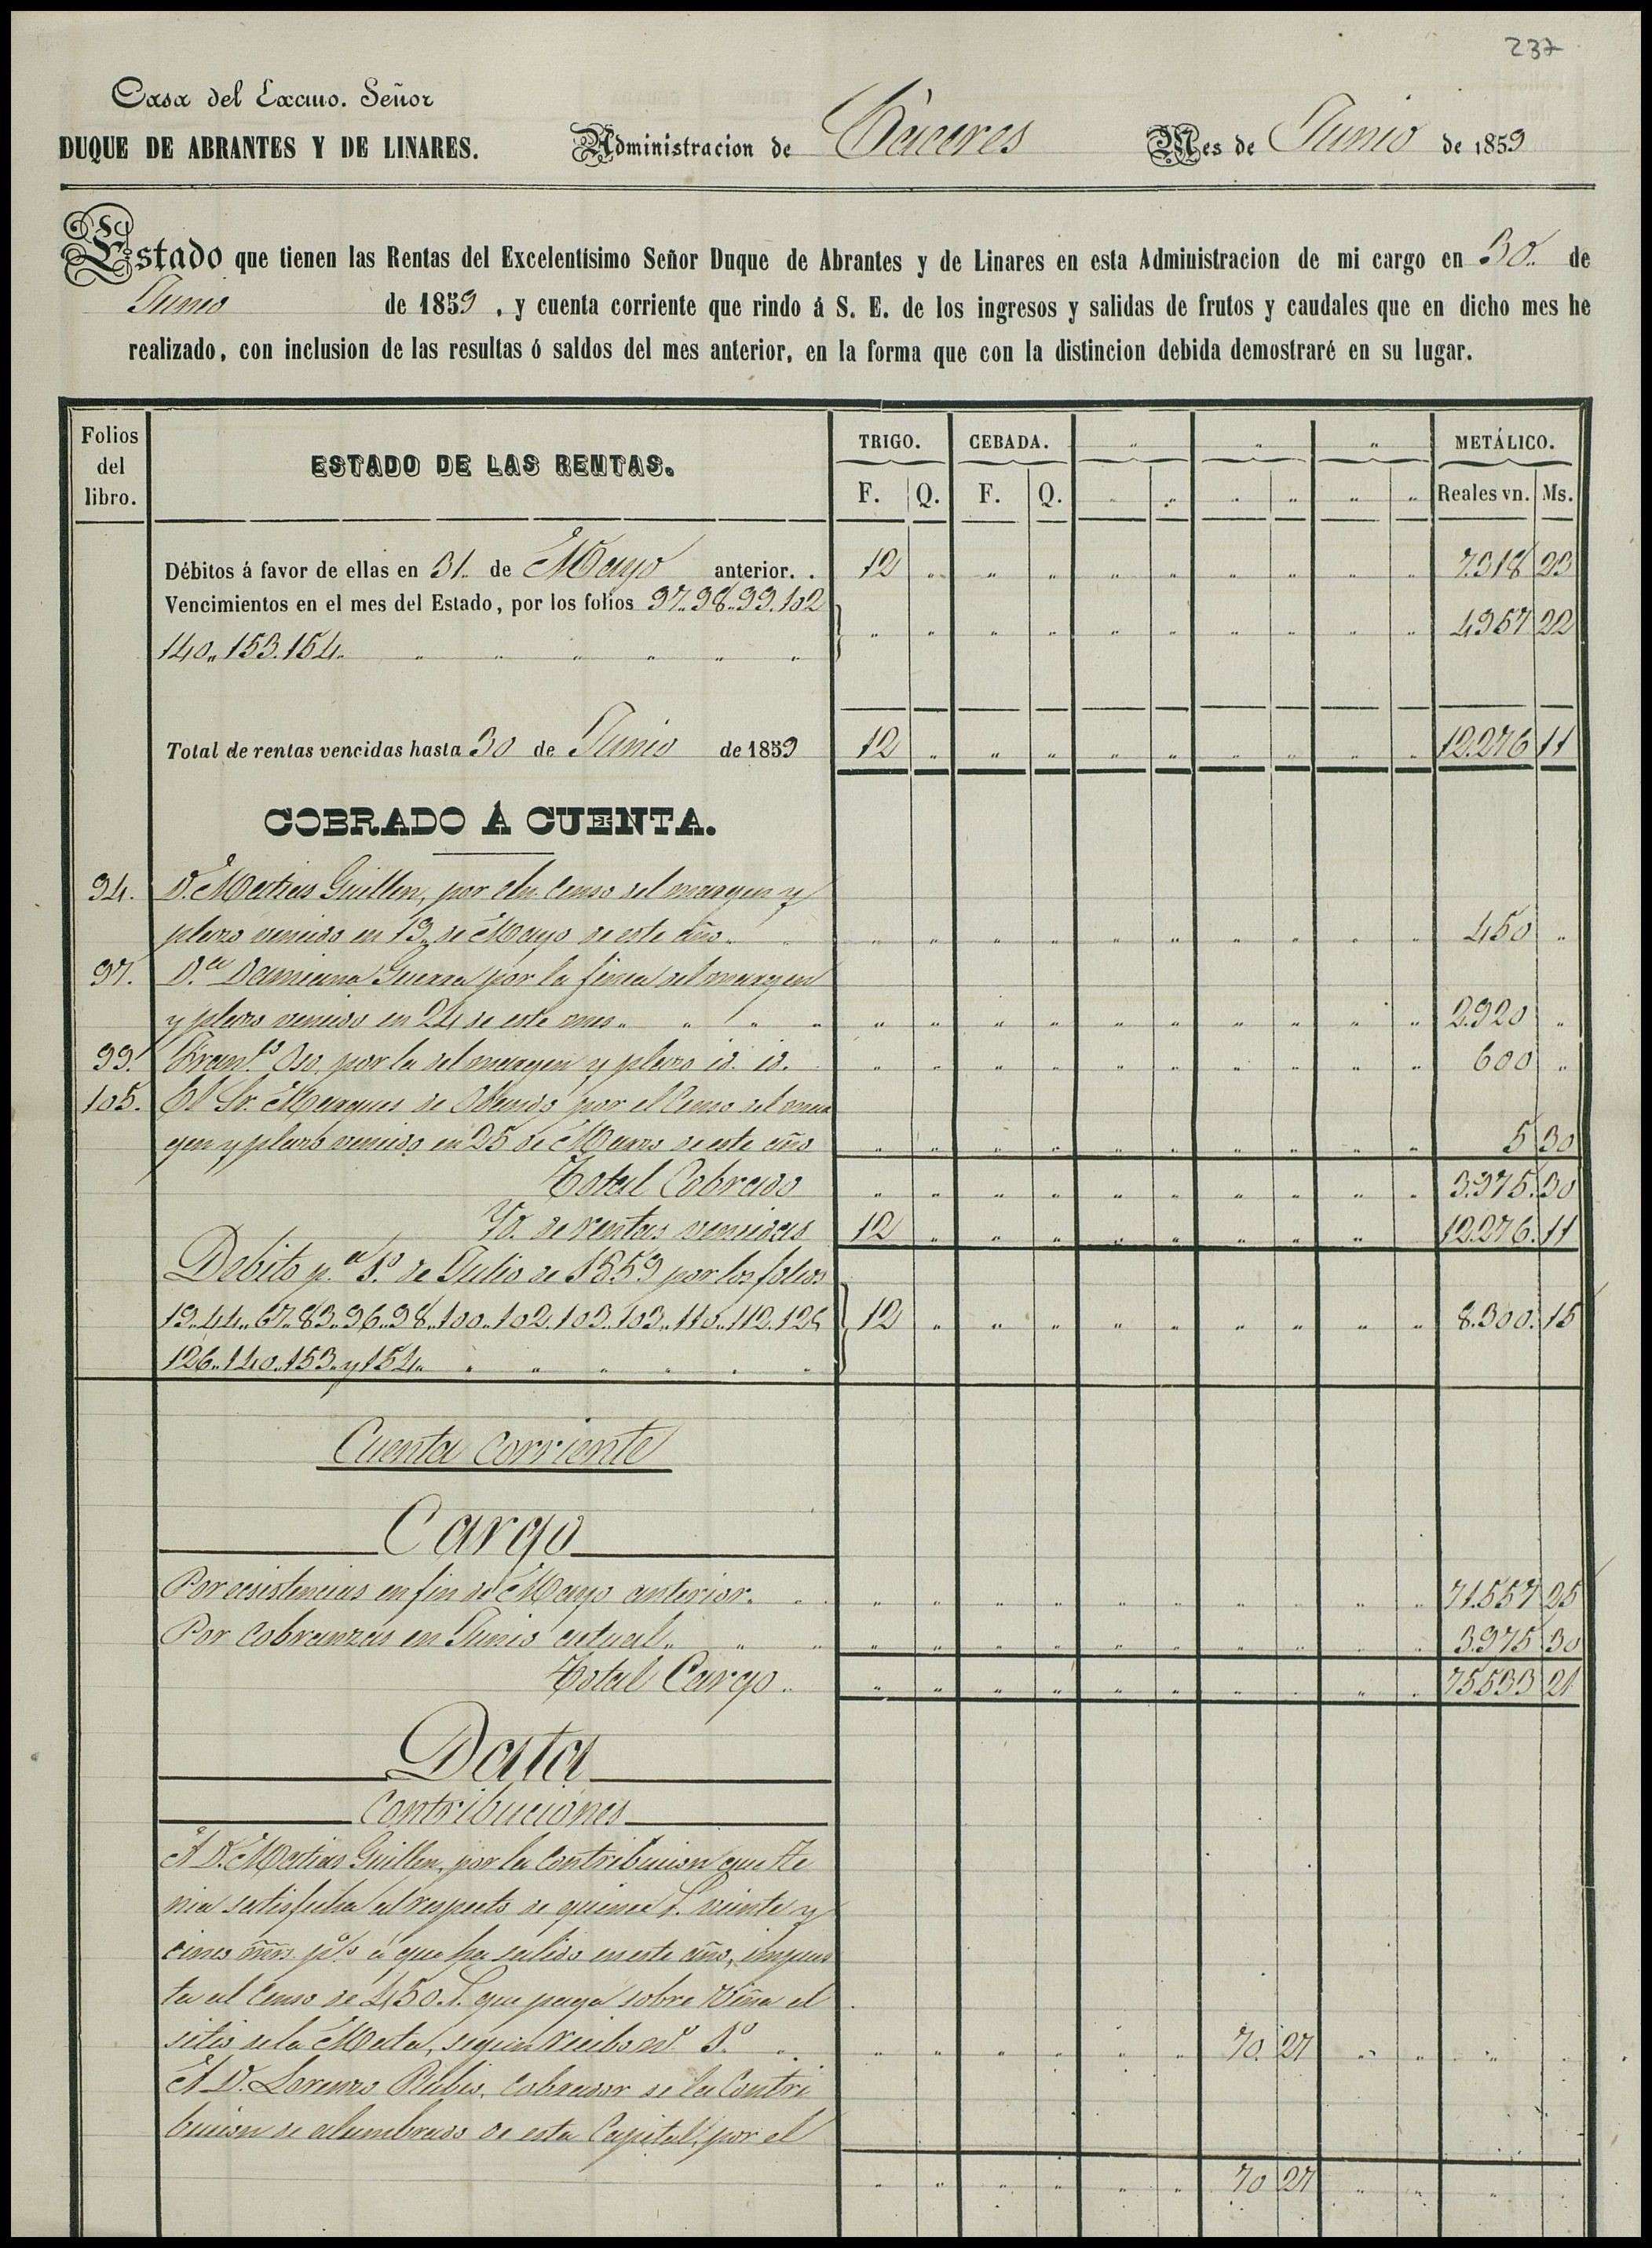 237
Casa del Excmo. Señor
DUQUE DE ABRANTES Y DE LINARES.
Administracion de Cáceres
Mes de Junio de 1859
Estado que tienen las Rentas del Excelentísimo Señor Duque de Abrantes y de Linares en esta Administracion de mi cargo en 30.. de
Junio de 1859 , y cuenta corriente que rindo á S. E. de los ingresos y salidas de frutos y caudales que en dicho mes he
realizado, con inclusion de las resultas ó saldos del mes anterior, en la forma que con la distincion debida demostraré en su lugar.
Folios del libro.
ESTADO DE LAS RENTAS.
TRIGO. CEBADA. " " " METÁLICO.
F. Q. F. Q. " " " " " " Reales vn. Ms.
Débitos á favor de ellas en 31.. de Mayo anterior. . 12 " " " " " " " " " 7.318 23
Vencimientos en el mes del Estado, por los folios 97..98..99.102
140..153.154.. " " " " " " " " " " 4957 22
Total de rentas vencidas hasta 30 de Junio de 1859 12 " " " " " " " " " 12.276 11
COBRADO Á CUENTA.
94. D. Matias Guillen, por el censo del margen y
plazo vencido en 19.. de Mayo de este año.. " " " " " " " " " " 450 "
97. D.a Damiana Guerra por la finca del margen
y plazo vencido en 24 de este mes.. " " " " " " " " " " 2.920 "
99. Fran.co Oso, por la del margen y plazo id. id. " " " " " " " " " " 600 "
105. El Sr. Marques de Obando por el Censo del mar
gen y plazo vencido en 25 de Marzo de este año " " " " " " " " " " 5 30
Total Cobrado " " " " " " " " " " 3.975. 30
Yd. de rentas vencidas 12 " " " " " " " " 12.276. 11
Debito p.a 1.o de Julio de 1859 por los folios
19..44..67..83..96..98..100..102.103.103..110..112.126 12 " " " " " " " " " 8.300. 15
126..140..153..y 154..
Cuenta corriente
Cargo
Por existencias en fin de Mayo anterior.. " " " " " " " " " " 71.557 25
Por cobranzas en Junio actual.. " " " " " " " " " " 3.975 30
Total Cargo.. " " " " " " " " " " 75533 21
Data
Contribuciones
A D. Matias Guillen, por la Contribucion que te
nia satisfecha al respecto de quince r. veinte y
cinco mrs p% á que ha salido en este año, impues
ta al Censo de 450 r. que paga sobre Viña al
sitio de la Mata, segun recibo nº 1.o " " " " " " 70. 27 " " " "
A D. Lorenzo Rubio, Cobrador de la Contri
bucion de alumbrado de esta Capital, por el
" " " " " " 70 27 " " " "